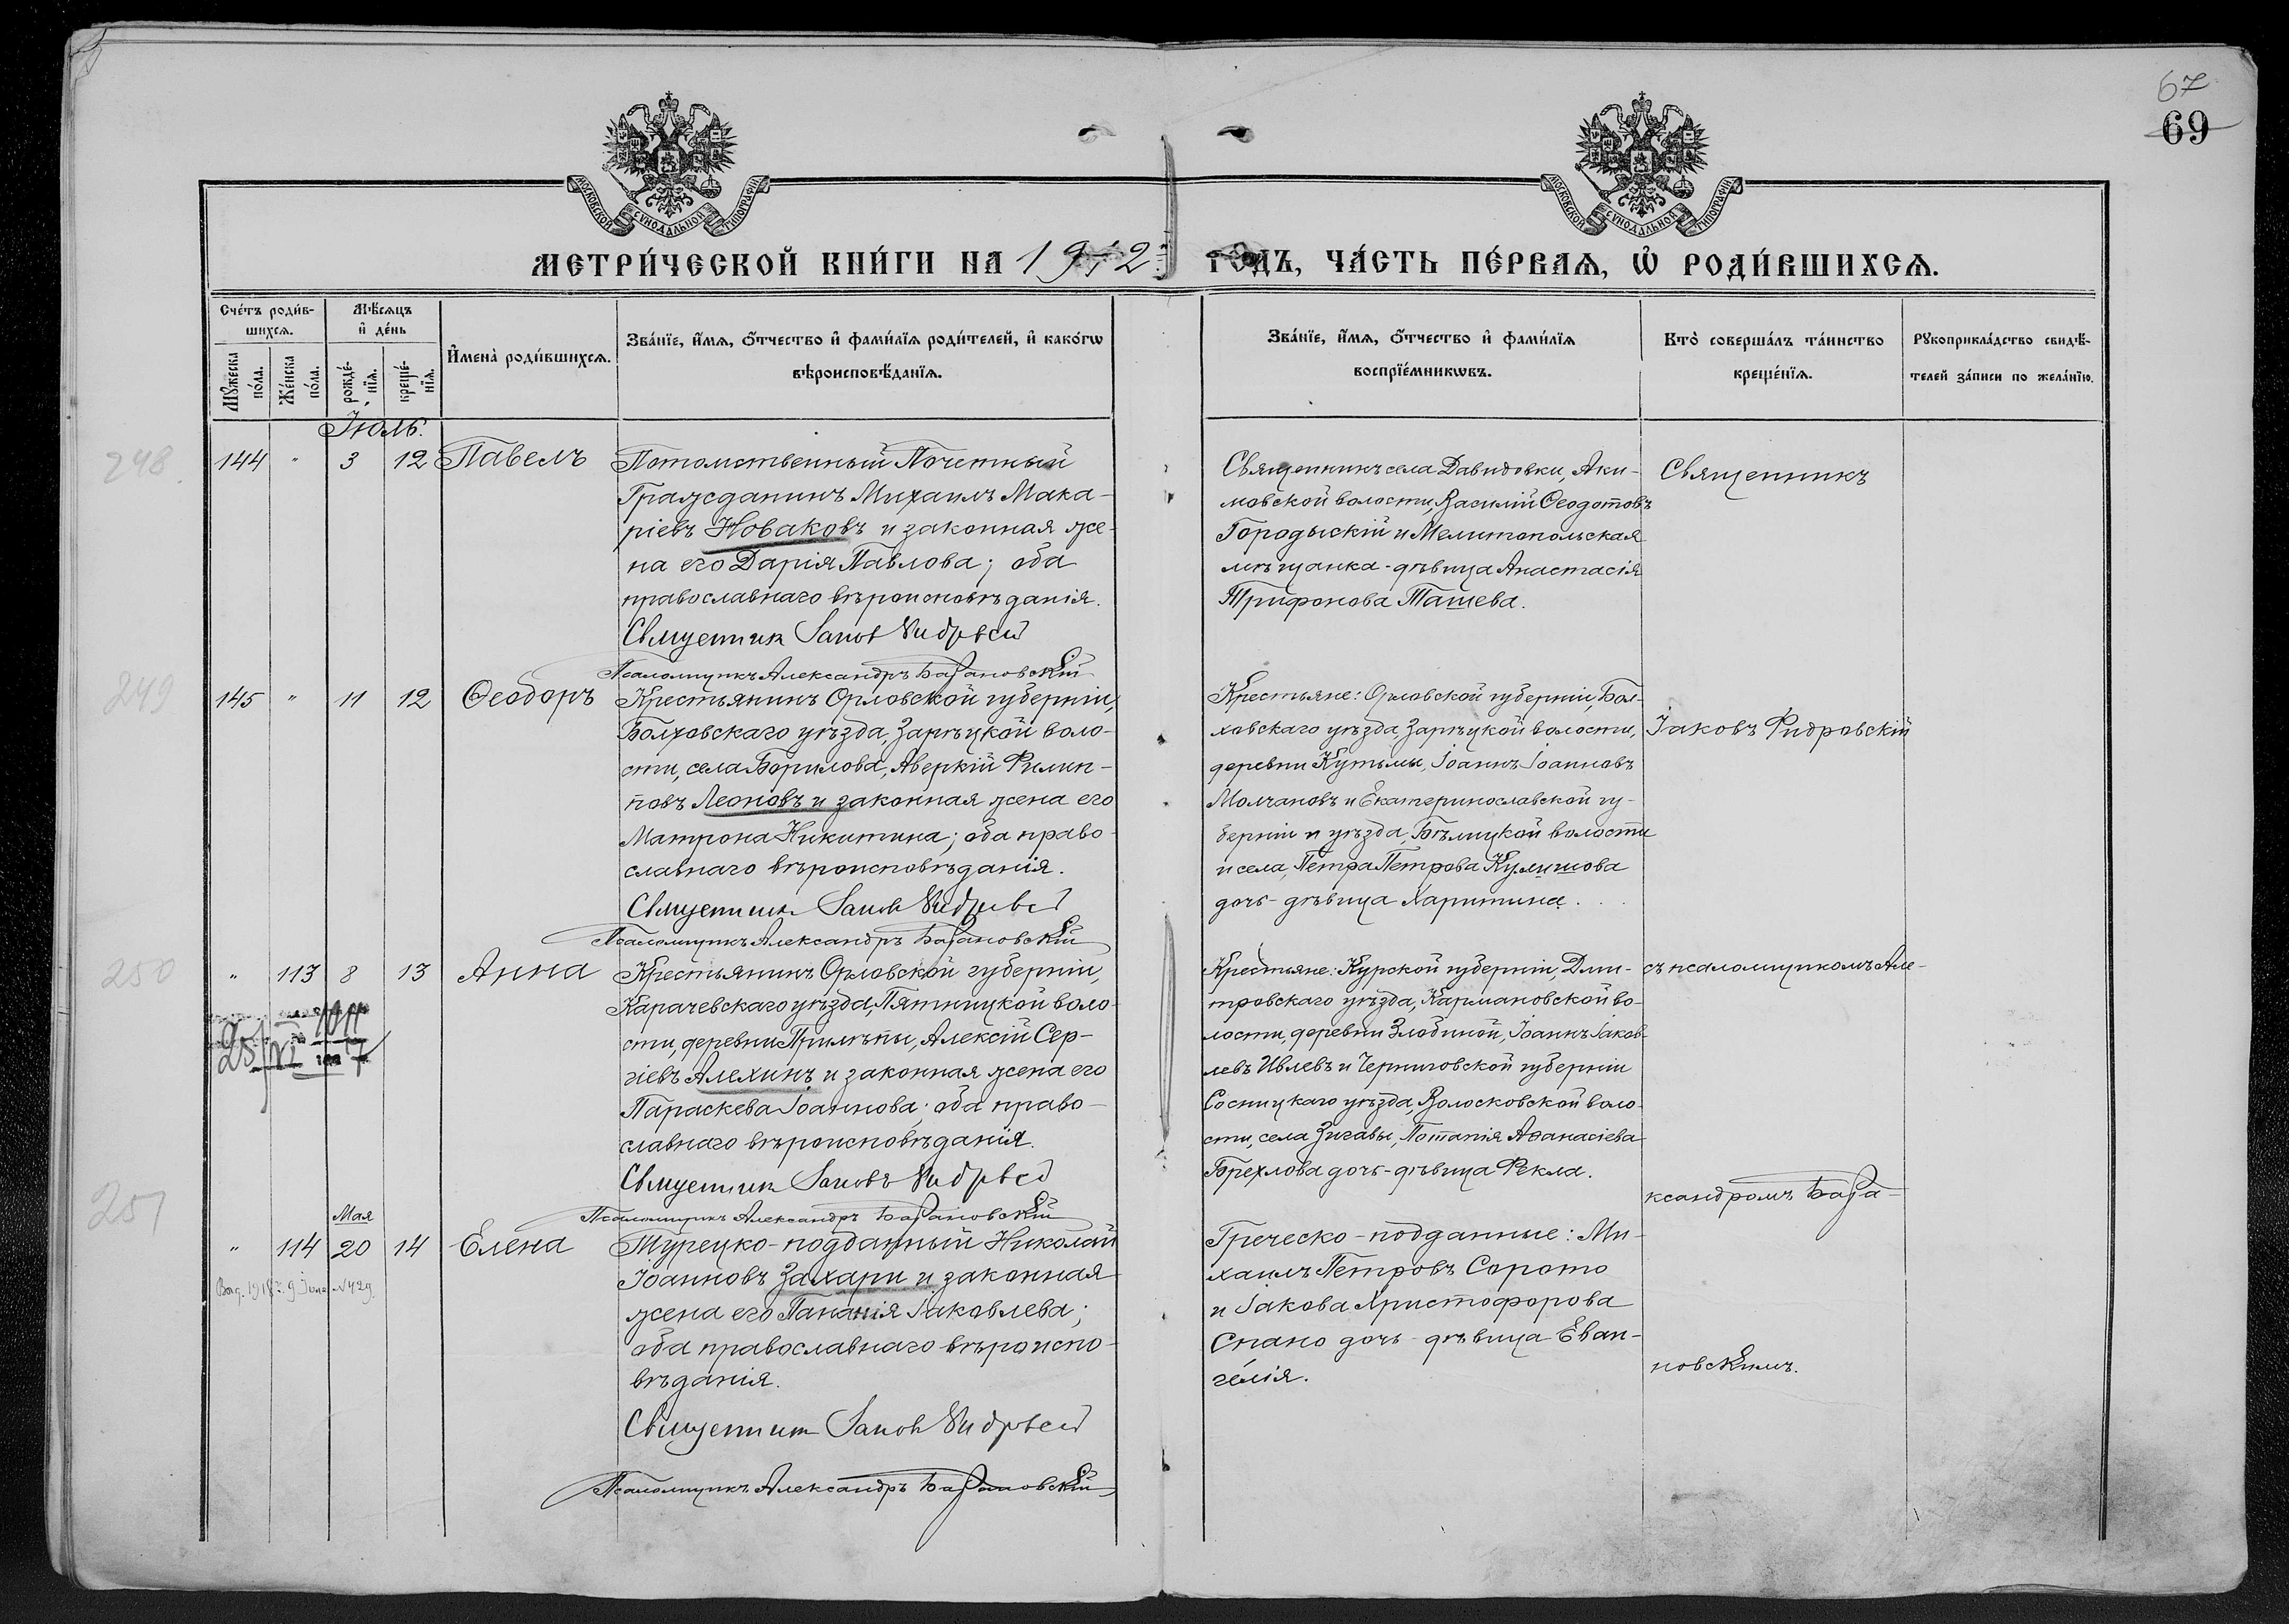 67
69
МОСКОВСКОЙ СУНОДАЛЬНОЙ ТИПОГРАФІИ
МОСКОВСКОЙ СУНОДАЛЬНОЙ ТИПОГРАФІИ
МЕТРИ́ЧЕСКОЙ КНИ́ГИ НА 1912 ГОДЪ, ЧА́СТЬ ПЕ́РВАѦ, Ѡ҆ РОДИ́ВШИХСѦ.
Сче́тъ роди́в-
шихсѧ.
Мꙋ́жеска по́ла.
Же́нска по́ла.
Мѣ́сѧцъ
и҆ де́нь
рожде́-нїѧ.
креще́-нїѧ.
И҆мена̀ роди́вшихсѧ.
Зва́нїе, и҆́мѧ, ѻ҆́тчество и҆ фами́лїѧ роди́телей, и҆ како́гѡ
вѣроисповѣ́данїѧ.
Зва́нїе, и҆́мѧ, ѻ҆́тчество и҆ фами́лїѧ
воспрїе́мникѡвъ.
Кто̀ соверша́лъ та́инство
креще́нїѧ.
Рꙋкоприкла́дство свидѣ́-
телей за́писи по жела́нїю.
Іюль.
248
144 " 3 12 Павелъ
Потомственный Почетный
Гражданинъ Михаилъ Мака-
ріевъ Новаковъ и законная же-
на его Дарія Павлова; оба
православнаго вѣроисповѣданія.
Священник Іаков
Псаломщикъ Александръ Барановскій
Священникъ села Давидовки, Аки-
мовской волости, Василій Ѳеодотовъ
Городыскій и Мелитопольская
мѣщанка-дѣвица Анастасія
Трифонова Ташева.
Священникъ
249
145 " 11 12 Ѳеодоръ
Крестьянинъ Орловской губерніи,
Болховскаго уѣзда, Зарѣцкой воло-
сти, села Борилова, Аверкій Филип-
повъ Леоновъ и законная жена его
Матрона Никитина; оба право-
славнаго вѣроисповѣданія.
Священник Іаков
Псаломщикъ Александръ Барановскій
Крестьяне: Орловской губерніи, Бол-
ховскаго уѣзда, Зарѣцкой волости,
деревни Кутьмы, Іоаннъ Іоанновъ
Молчановъ и Екатеринославской гу-
берніи и уѣзда, Бѣлицкой волости
и села, Петра Петрова Кулишова
дочь-дѣвица Харитина.
Іаковъ Фидровскій
250
" 113 8 13 Анна
Крестьянинъ Орловской губерніи,
Карачевскаго уѣзда, Пятницкой воло-
сти, деревни Прилѣпы, Алексій Сер-
гіевъ Алехинъ и законная жена его
Параскева Іоаннова; оба право-
славнаго вѣроисповѣданія.
Священник Іаковъ
Псаломщикъ Александръ Барановскій
Крестьяне: Курской губерніи, Дми-
тровскаго уѣзда, Кармановской во-
лости, деревни Злобиной, Іоаннъ Іаков-
левъ Ивлевъ и Черниговской губерніи
Сосницкаго уѣзда, Волосковской воло-
сти, села Зигавы, Потапія Аѳанасіева
Брехлова дочь-дѣвица Ѳекла.
съ псаломщикомъ Але-
ксандромъ Бара-
251
Мая
" 114 20 14 Елена
Выд. 1918 г. 9 Іюля №429
Турецко-подданный Николай
Іоанновъ Захари и законная
жена его Панаія Іаковлева;
оба православнаго вѣроиспо-
вѣданія.
Священник Іаков
Псаломщикъ Александръ Барановскій
Греческо-подданные: Ми-
хаилъ Петровъ Сорото
и Іакова Христофорова
Спано дочь-дѣвица Еван-
гелія.
новскимъ.